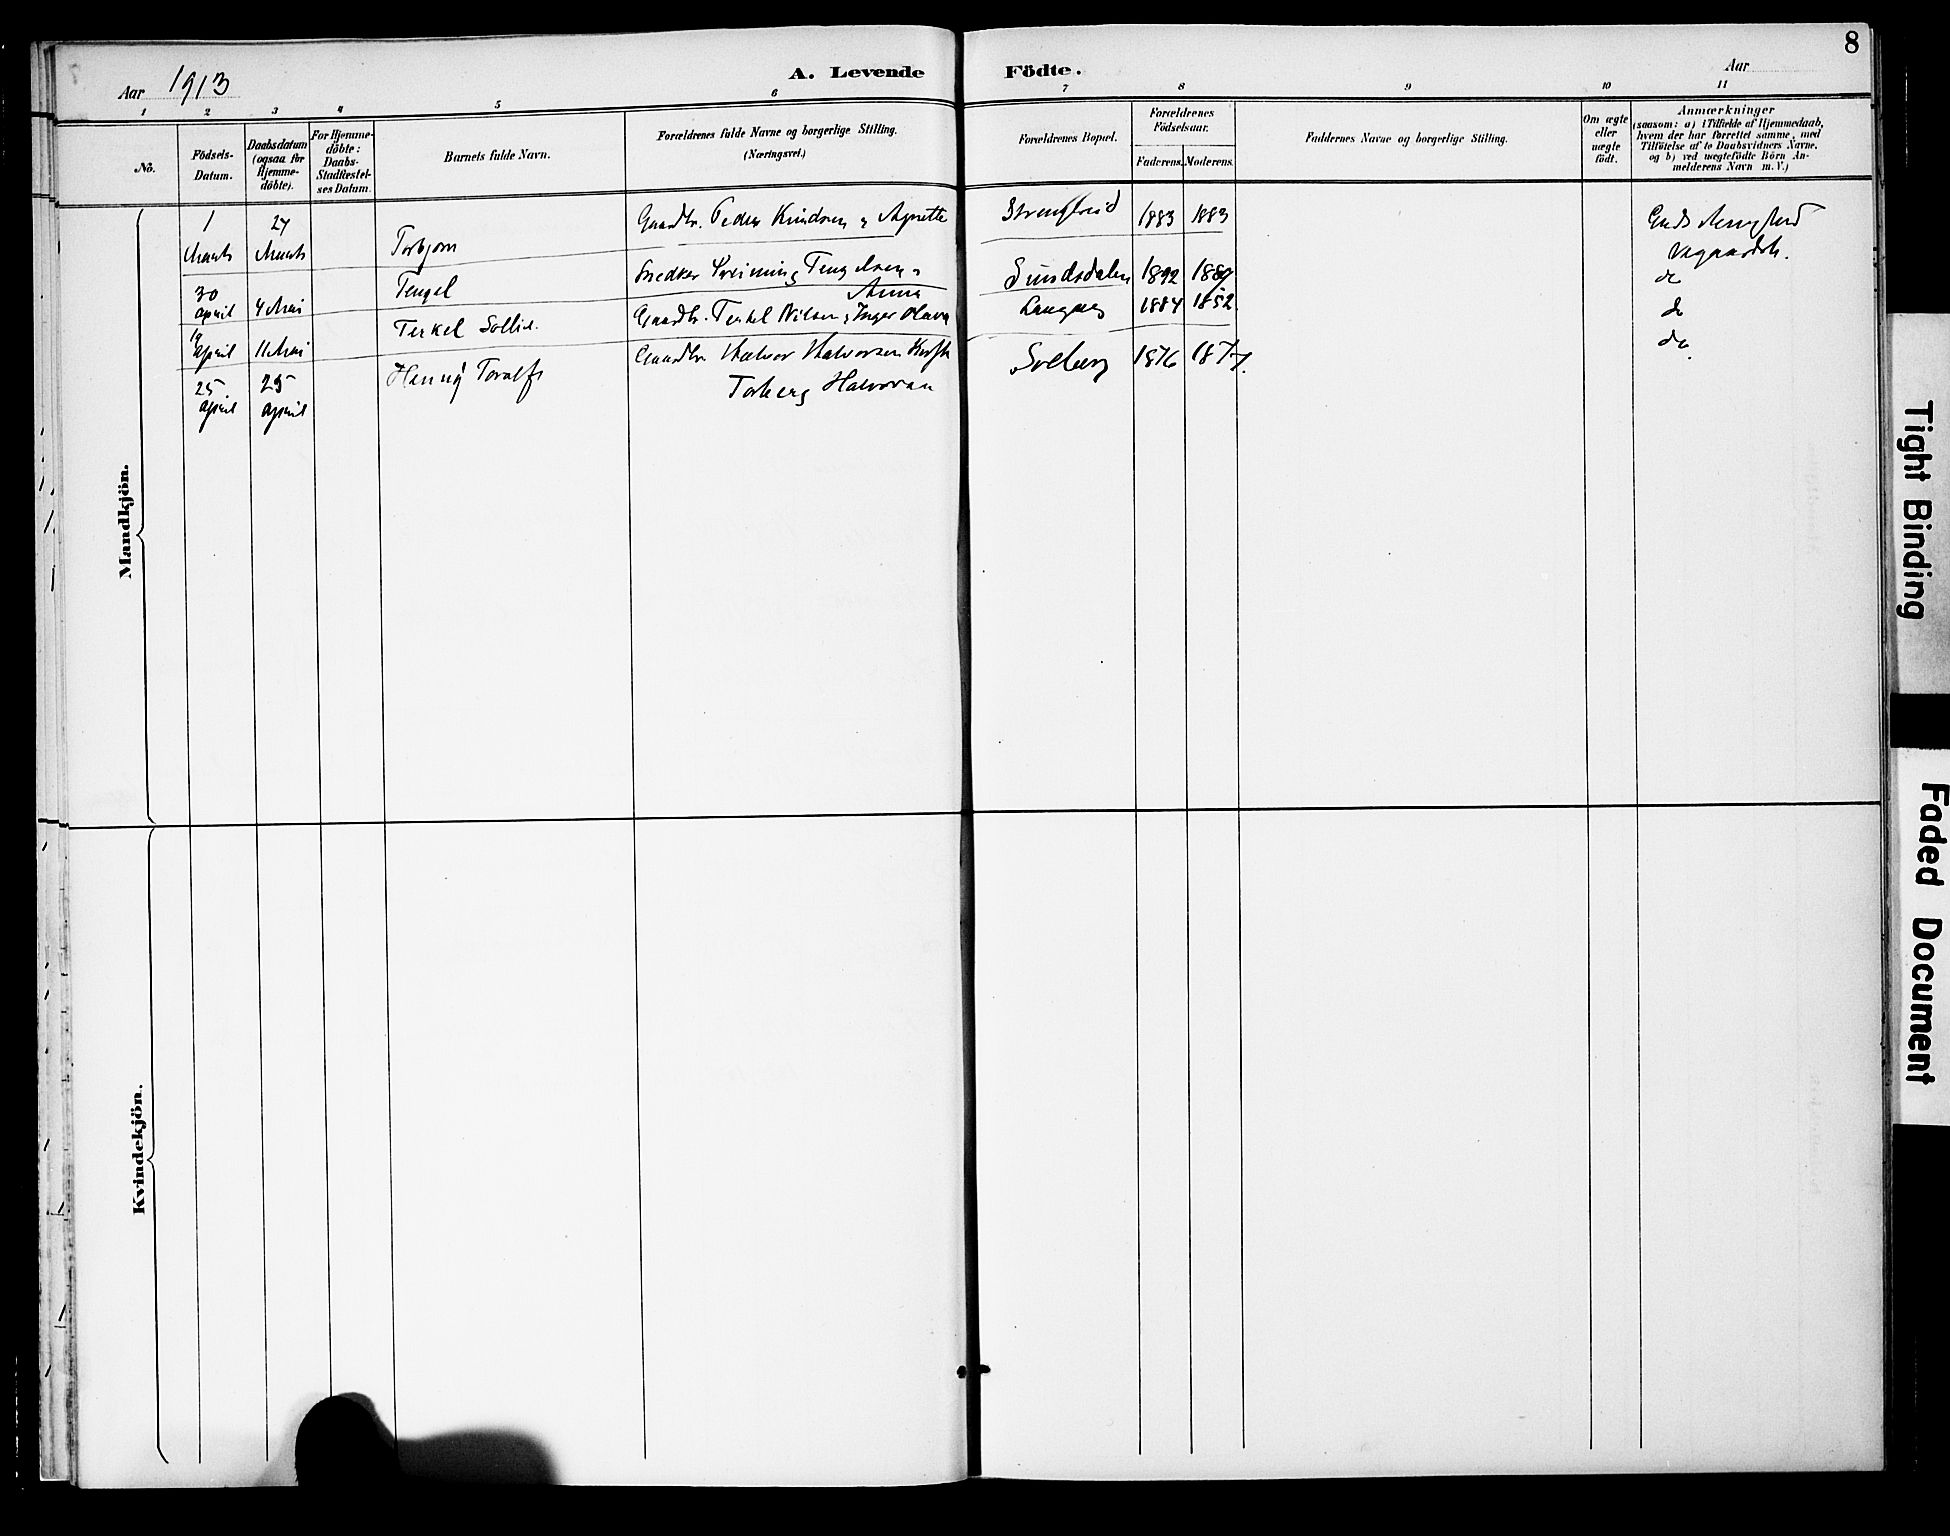 8
Aar 1913
A. Levende Födte.
Aar
1 2 3 4 5 6 7 8 9 10 11
No.
Födsels-Datum.
Daabsdatum (ogsaa for Hjemme-döbte).
For Hjemme-döbte: Daabs-Stadfæstel-ses Datum.
Barnets fulde Navn.
Forældrenes fulde Navne og borgerlige Stilling.
(Næringsvei.)
Forældrenes Bopæl.
Forældrenes Födselsaar.
Faderens. Moderens.
Faddernes Navne og borgerlige Stilling.
Om ægte eller uægte födt.
Anmærkninger
(saasom: a) i Tilfælde af Hjemmedaab,
hvem der har forrettet samme, med
Tilföielse af to Daabsvidners Navne,
og b) ved uægtefödte Börn An-
melderens Navn m. V.)
Mandkjön.
1 Marts 24 Marts Torbjørn Gaardbr. Peder Knudsen & Agnette 1883 1883
30 april 4 Mai Tengel Snedker Tengelsen & Anna Sundsdalen 1892
april 11 Mai Terkel Sollie. Gaardbr. Terkel Nilsen & Inger Olava 1884 1852. do
25. april 25 april Henny Toralf Gaardbr Halvor Halvorsen
Torberg Halvorsen Solberg 1876 1877. do
Kvindekjön.
Tight Binding
Faded Document